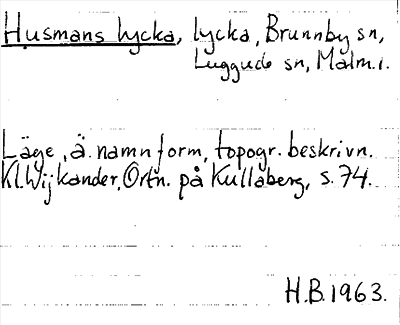 Husmans lycka, lycka, Brunnby sn,
Luggude sn, Malm.l.
Läge, ä. namnform, topogr. beskrivn.
Kl. Wijkander, Ortn. på Kullaberg, s. 74.
H.B. 1963.